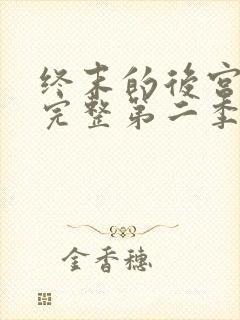 终末的後宫
完整第二季
金香穗